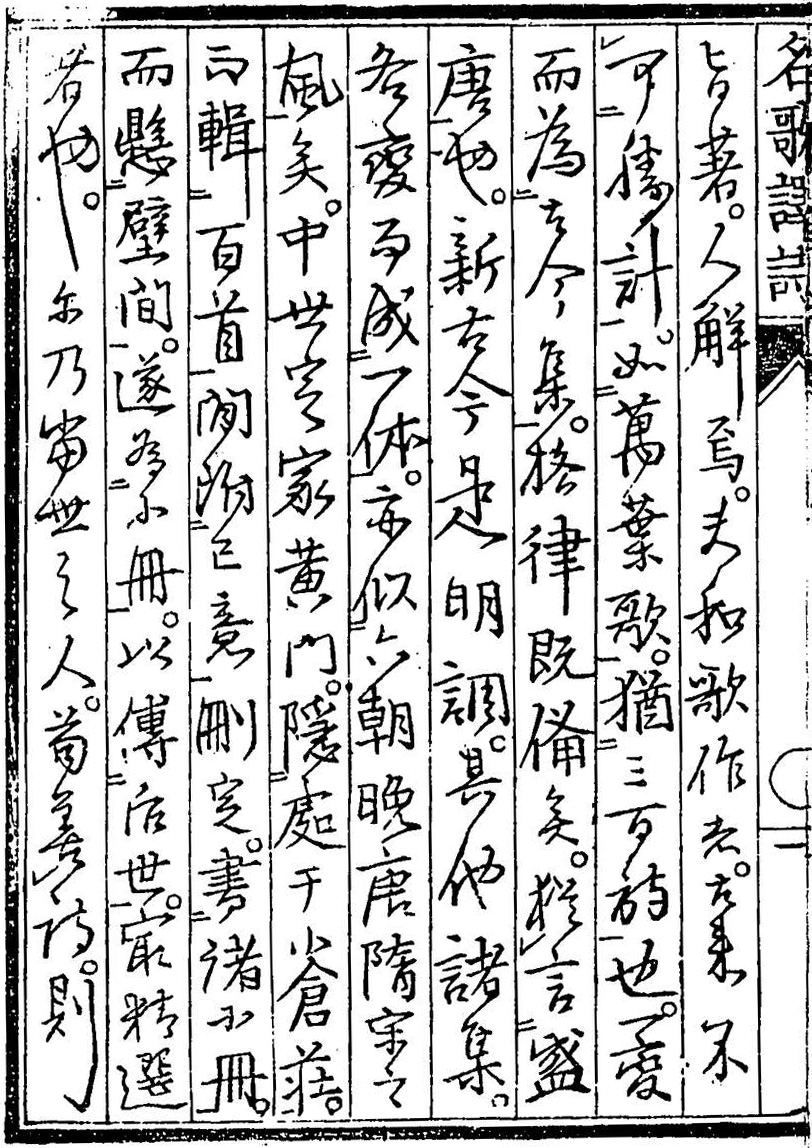 名歌譯詩
旨著。人解焉。夫和歌作者。古来不
可勝計。如萬葉歌。猶三百詩也。一變
而為古今集。格律既備矣。猶言盛
唐也。新古今是明調。其他諸集。
各變而成一体。亦似六朝晩唐隋宋之
風矣。中世定家黄門。隱處于小倉莊。
而輯百首間附己意刪定。書諸小冊。
而懸壁間。遂為小冊。以傳后世。最精選
者也。尓乃當世之人。苟善詩。則